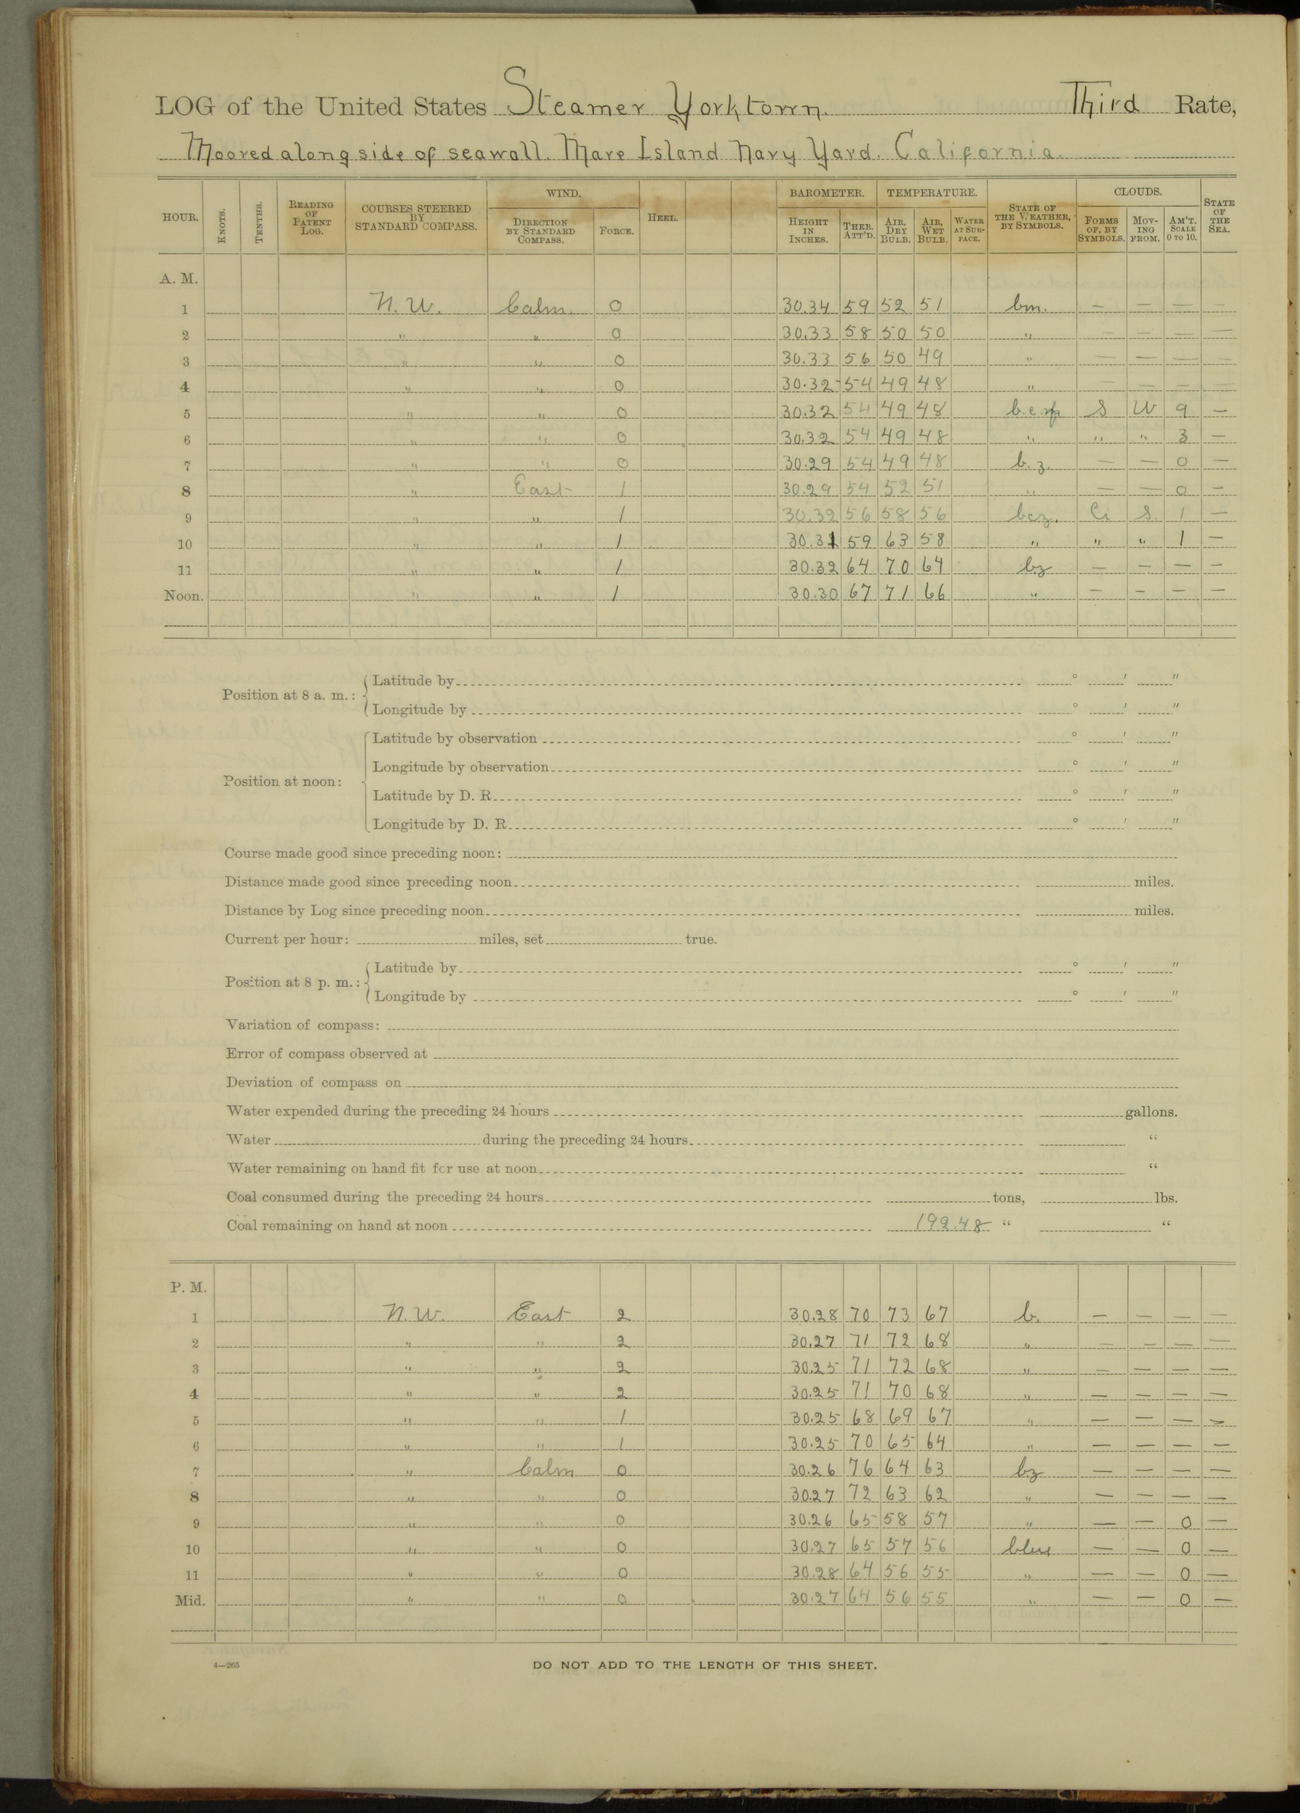 LOG of the United States Steamer Yorktown. Third Rate,
Moored alongside of seawall. Mare Island Navy Yard. California.
HOUR. KNOTS. TENTHS. READING OF PATENT LOG. COURSES STEERED BY STANDARD COMPASS. WIND. DIRECTION BY STANDARD COMPASS. FORCE. HEEL. BAROMETER. HEIGHT IN INCHES. THER. ATT'D. TEMPERATURE. AIR, DRY BULB. AIR, WET BULB. WATER AT SURFACE. STATE OF THE WEATHER, BY SYMBOLS. CLOUDS. FORMS OF, BY SYMBOLS. MOVING FROM. AM'T. SCALE 0 TO 10. STATE OF THE SEA.
A. M.
1 N. W. Calm. 0 30.34 59 52 51 bm. — — — —
2 " " 0 30.33 58 50 50 " — — — —
3 " " 0 30.33 56 50 49 " — — — —
4 " " 0 30.32 54 49 48 " — — — —
5 " " 0 30.32 54 49 48 S W 9 —
6 " " 0 30.32 54 49 48 " " " 3 —
7 " " 0 30.29 54 49 48 b. z. — — 0 —
8 " East 1 30.29 54 52 51 " — — 0 —
9 " " 1 30.32 56 58 56 bcz. Ci S. 1 —
10 " " 1 30.31 59 63 58 " " " 1 —
11 " " 1 30.32 64 70 64 bz — — — —
Noon. " " 1 30.30 67 71 66 " — — — —
Position at 8 a. m.: Latitude by ° ′ ″
Longitude by ° ′ ″
Position at noon: Latitude by observation ° ′ ″
Longitude by observation ° ′ ″
Latitude by D. R. ° ′ ″
Longitude by D. R. ° ′ ″
Course made good since preceding noon:
Distance made good since preceding noon miles.
Distance by Log since preceding noon miles.
Current per hour: miles, set true.
Position at 8 p. m.: Latitude by ° ′ ″
Longitude by ° ′ ″
Variation of compass:
Error of compass observed at
Deviation of compass on
Water expended during the preceding 24 hours gallons.
Water during the preceding 24 hours "
Water remaining on hand fit for use at noon "
Coal consumed during the preceding 24 hours tons, lbs.
Coal remaining on hand at noon 192.48 " "
P. M.
1 N. W. East 2 30.28 70 73 67 b. — — — —
2 " " 2 30.27 71 72 68 " — — — —
3 " " 2 30.25 71 72 68 " — — — —
4 " " 2 30.25 71 70 68 " — — — —
5 " " 1 30.25 68 69 67 " — — — —
6 " " 1 30.25 70 65 64 " — — — —
7 " Calm 0 30.26 76 64 63 bz — — — —
8 " " 0 30.27 72 63 62 " — — — —
9 " " 0 30.26 65 58 57 " — — 0 —
10 " " 0 30.27 65 57 56 — — 0 —
11 " " 0 30.28 64 56 55 " — — 0 —
Mid. " " 0 30.27 64 56 55 " — — 0 —
4—265 DO NOT ADD TO THE LENGTH OF THIS SHEET.